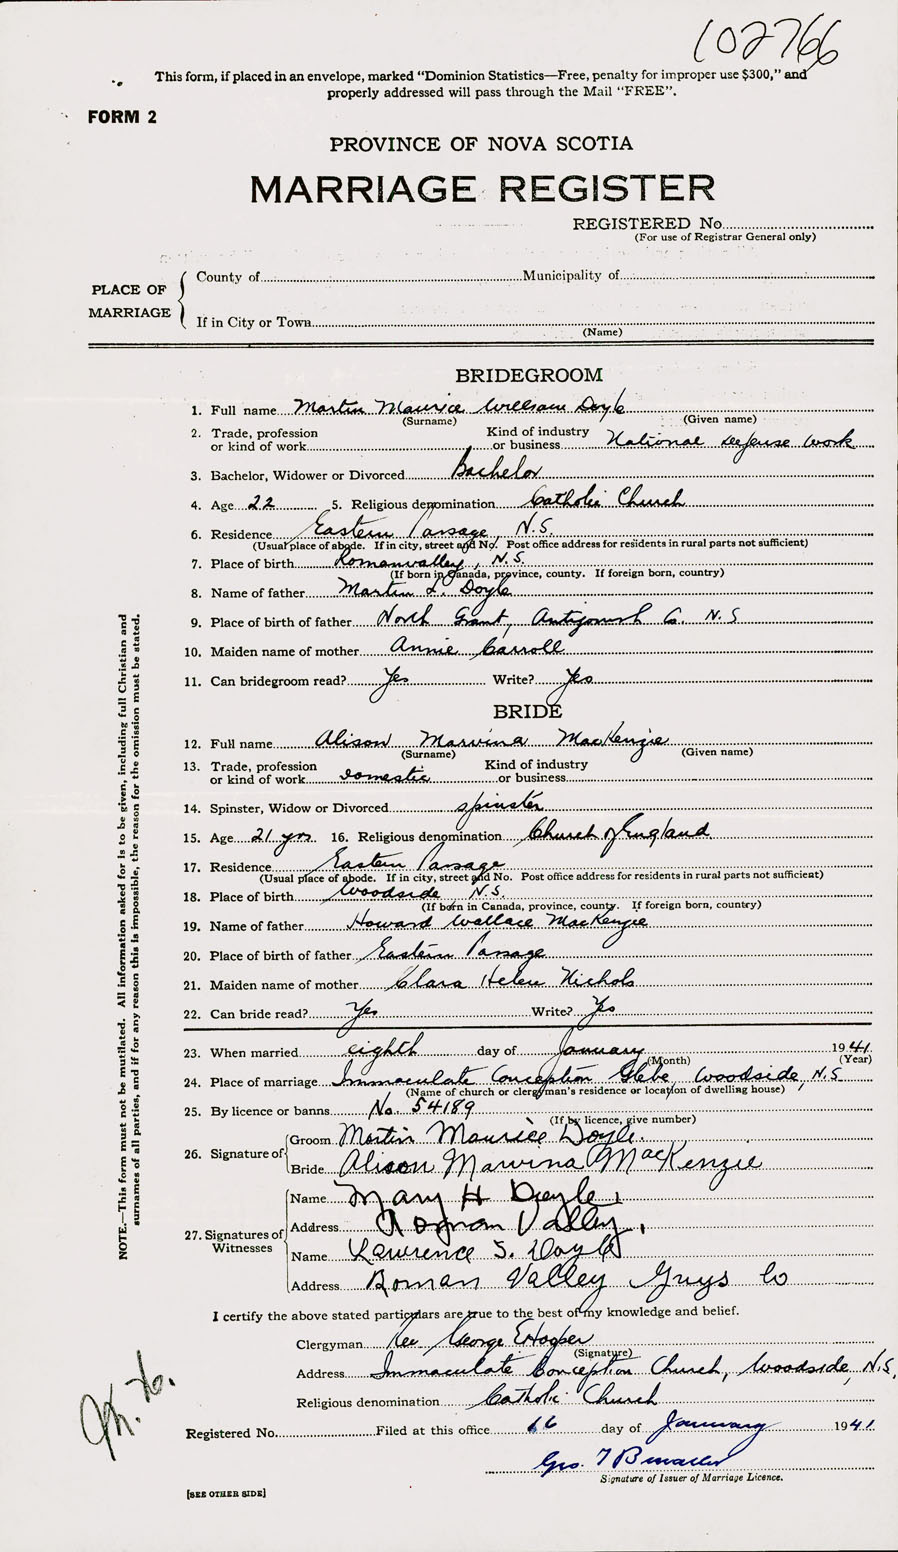 102766
This form, if placed in an envelope, marked "Dominion Statistics—Free, penalty for improper use $300," and
properly addressed will pass through the Mail "FREE".
FORM 2
PROVINCE OF NOVA SCOTIA
MARRIAGE REGISTER
REGISTERED No.
(For use of Registrar General only)
PLACE OF MARRIAGE
County of Municipality of
If in City or Town
(Name)
BRIDEGROOM
1. Full name Martin Maurice William Doyle
(Surname) (Given name)
2. Trade, profession or kind of work Kind of industry or business National Defense Work
3. Bachelor, Widower or Divorced Bachelor
4. Age 22 5. Religious denomination Catholic Church
6. Residence Eastern Passage, N.S.
(Usual place of abode. If in city, street and No. Post office address for residents in rural parts not sufficient)
7. Place of birth Romanvalley, N.S.
(If born in Canada, province, county. If foreign born, country)
8. Name of father Martin L. Doyle
9. Place of birth of father North Grant, Antigonish Co. N.S
10. Maiden name of mother Annie Carroll
11. Can bridegroom read? Yes Write? Yes
BRIDE
12. Full name Alison Marvina MacKenzie
(Surname) (Given name)
13. Trade, profession or kind of work Domestic Kind of industry or business
14. Spinster, Widow or Divorced spinster
15. Age 21 yrs 16. Religious denomination Church of England
17. Residence Eastern Passage
(Usual place of abode. If in city, street and No. Post office address for residents in rural parts not sufficient)
18. Place of birth Woodside N.S.
(If born in Canada, province, county. If foreign born, country)
19. Name of father Howard Wallace MacKenzie
20. Place of birth of father Eastern Passage
21. Maiden name of mother Clara Helen Nichols
22. Can bride read? Yes Write? Yes
23. When married eighth day of January 1941
(Month) (Year)
24. Place of marriage Immaculate Conception Glebe, Woodside, N.S
(Name of church or clergyman's residence or location of dwelling house)
25. By licence or banns No. 54189
(If by licence, give number)
26. Signature of Groom Martin Maurice Doyle.
Bride Alison Marvina MacKenzie
27. Signatures of Witnesses
Name Mary H Doyle,
Address Roman Valley,
Name Lawrence S. Doyle
Address Roman Valley Guys Co
I certify the above stated particulars are true to the best of my knowledge and belief.
Clergyman Rev George
(Signature)
Address Immaculate Conception Church, Woodside, N.S.
Religious denomination Catholic Church
Registered No. Filed at this office day of January 1941
Geo. T
Signature of Issuer of Marriage Licence.
[SEE OTHER SIDE]
NOTE.—This form must not be mutilated. All information asked for is to be given, including full Christian and
surnames of all parties, and if for any reason this is impossible, the reason for the omission must be stated.